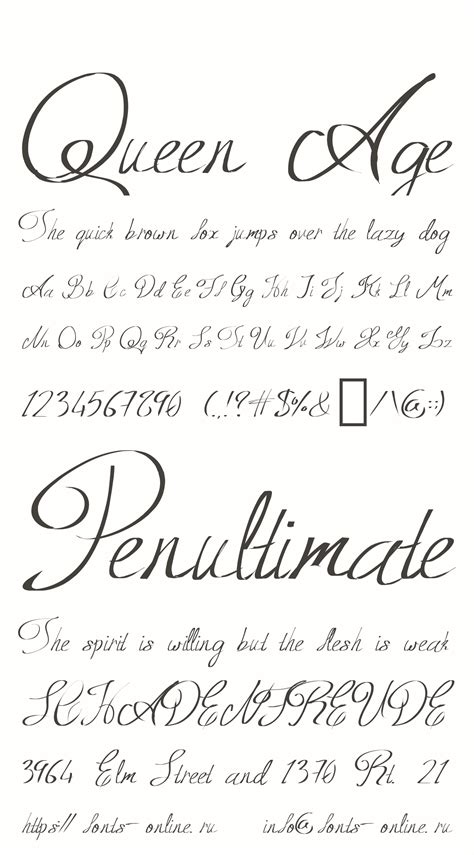 Queen Age
The quick brown fox jumps over the lazy dog
Aa Bb Cc Dd Ee Ff Gg Hh Ii Jj Kk Ll Mm
Nn Oo Pp Qq Rr Ss Tt Uu Vv Ww Xx Yy Zz
1234567890 (.,!?#$%& /\@:;)
Penultimate
The spirit is willing but the flesh is weak
SCHADENFREUDE
3964 Elm Street and 1370 Rt. 21
https:// fonts- online. ru info@ fonts- online. ru